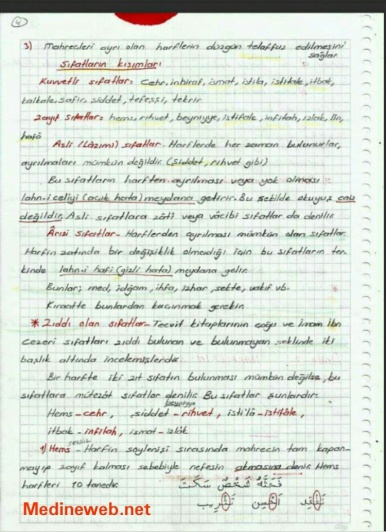 4
3) Mahrecleri ayrı olan harflerin düzgün telaffuz edilmesini
sağlar
Sıfatların kısımları
Kuvvetli sıfatlar: Cehr, inhiraf, ismat, istila, istitale, itbak,
kalkale, safir, şiddet, tefeşşi, tekrir
Zayıf sıfatlar: hems, rihvet, beyniyye, istifale, infitah, izlak, lin,
hafâ
Asli (Lâzımi) sıfatlar. Harflerde her zaman bulunurlar,
ayrılmaları mümkün değildir. (Şiddet, rihvet gibi)
Bu sıfatların harften ayrılması veya yok olması
lahn-i celiyi (açık hata) meydana getirir. Bu şekilde okuyuş caiz
değildir. Asli sıfatlara zâtî veya vâcibi sıfatlar da denilir
Ârızi sıfatlar- Harflerden ayrılması mümkün olan sıfatlar.
Harfin zatında bir değişiklik olmadığı için bu sıfatların ter
kinde lahn-i hafi (gizli hata) meydana gelir.
Bunlar; med, idğam, ihfa, izhar, sekte, vakıf vb.
Kıraatte bunlardan kaçınmak gerekir.
* Zıddı olan sıfatlar- Tecvit kitaplarının çoğu ve İmam İbn
Cezeri sıfatları zıddı bulunan ve bulunmayan şeklinde iki
başlık altında incelemişlerdir.
Bir harfte iki zıt sıfatın bulunması mümkün değilse, bu
sıfatlara mütezât sıfatlar denilir. Bu sıfatlar şunlardır:
Hems-cehr, şiddet-rihvet, isti'lâ-istifâle,
itbak-infitah, ismat-izlâk
1) Hems- Harfin söylenişi sırasında mahrecin tam kapan-
mayıp zayıf kalması sebebiyle nefesin akmasına denir. Hems
harfleri 10 tanedir. فَحَثَّهُ شَخْصٌ سَكَتَ
Medineweb.net